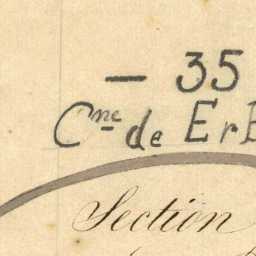 — 35
Cne de ErB
Section